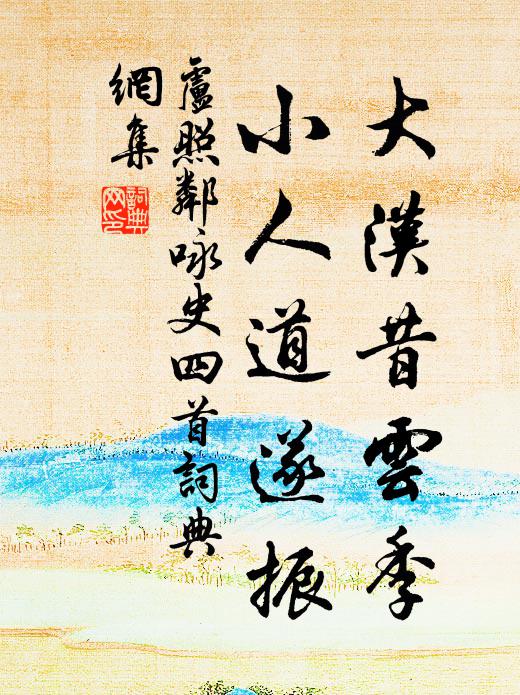 大漢昔雲季
小人道遂振
盧照鄰咏史四首詞典
網集
詞典
网印